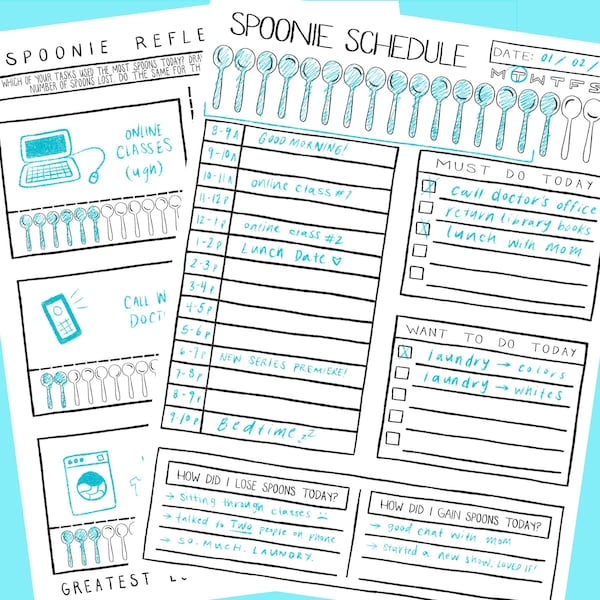 SPOONIE REFLE
WHICH OF YOUR TASKS USED THE MOST SPOONS TODAY? DRA
NUMBER OF SPOONS LOST. DO THE SAME FOR TH
ONLINE
CLASSES
(ugh)
CALL W
DOCT
GREATEST
SPOONIE SCHEDULE
DATE: 01/02/
M T W T F S
8-9A GOOD MORNING!
9-10A
10-11A online class #1
11-12P
12-1P online class #2
1-2P Lunch Date ♡
2-3P
3-4P
4-5P
5-6P
6-7P NEW SERIES PREMIERE!
7-8P
8-9P
9-10P Bedtime zz
MUST DO TODAY
X call doctor's office
return library books
X lunch with mom
WANT TO DO TODAY
X laundry → colors
laundry → whites
HOW DID I LOSE SPOONS TODAY?
→ Sitting through classes
→ talked to TWO people on phone
→ SO. MUCH. LAUNDRY.
HOW DID I GAIN SPOONS TODAY?
→ good chat with mom
→ started a new show, LOVED IT!